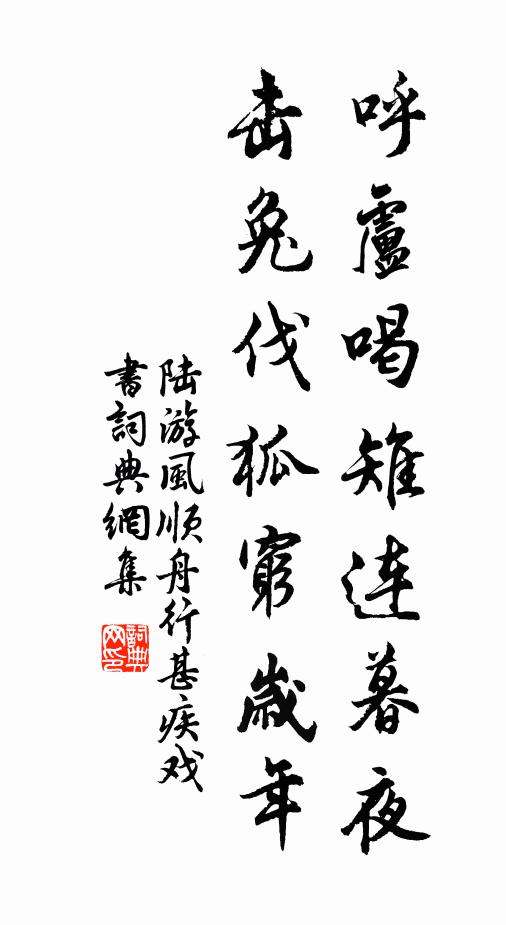 呼盧喝雉连暮夜
击兔伐狐窮歲年
陆游風順舟行甚疾戏
書詞典網集
詞典
网印